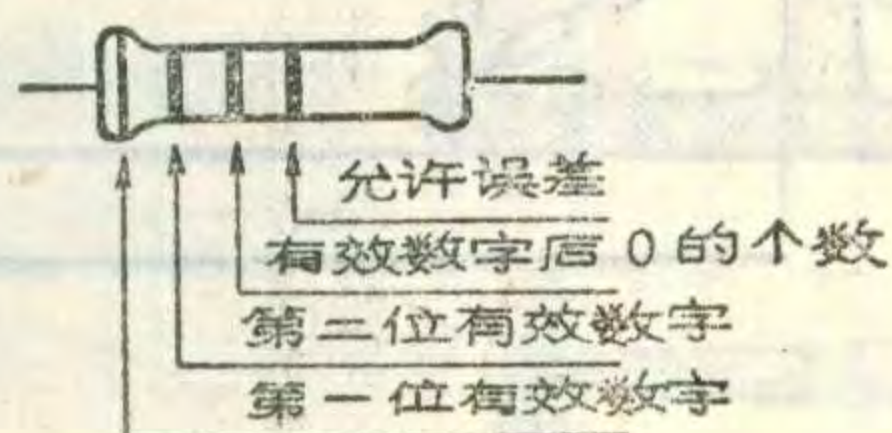 允许误差
有效数字后0的个数
第二位有效数字
第一位有效数字